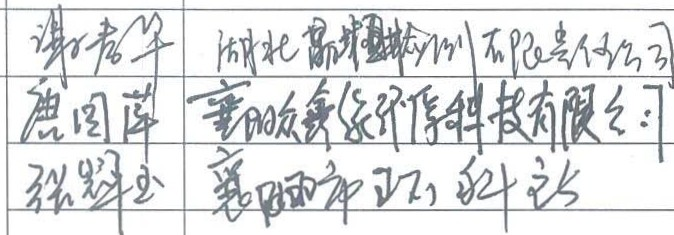 谢春华 湖北 有限责任公司
唐国萍 襄阳众鑫缘环保科技有限公司
张辉玉 襄阳市环科所